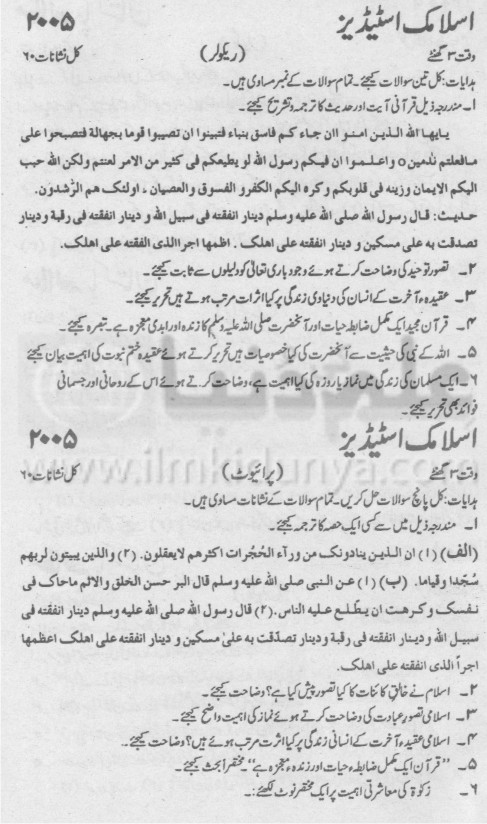 اسلامک اسٹیڈیز ۲۰۰۵
وقت ۳ گھنٹے (ریگولر) کل نشانات ۶۰
ہدایات: کل تین سوالات کیجئے۔ تمام سوالات کے نمبر مساوی ہیں۔
۱۔ مندرجہ ذیل قرآنی آیت اور حدیث کا ترجمہ و تشریح کیجئے۔
یایها الله الذین امنو اان جاء کم فاسق بنباء فتبینوا ان تصیبوا قوما بجهالة فتصبحوا علی
مافعلتم ندمین٥ واعلموا ان فیکم رسول الله لو یطیعکم فی کثیر من الامر لعنتم ولکن الله حبب
الیکم الایمان وزینه فی قلوبکم وکره الیکم الکفرو الفسوق والعصیان ، اولئک هم الرشدون۔
حدیث: قال رسول الله صلی الله علیه وسلم دینار انفقته فی سبیل الله و دینار انفقته فی رقبة و دینار
تصدقت به علی مسکین و دینار انفقته علی اهلک ۔ اظمها اجرا الذی الفقته علی اهلک۔
۲۔ تصور توحید کی وضاحت کرتے ہوئے وجود باری تعالیٰ کو دلیلوں سے ثابت کیجئے۔
۳۔ عقیدہء آخرت کے انسان کی دنیاوی زندگی پر کیا اثرات مرتب ہوتے ہیں تحریر کیجئے۔
۴۔ قرآن مجید ایک مکمل ضابطہ حیات اور آنحضرت صلی اللہ علیہ وسلم کا زندہ اور ابدی معجزہ ہے۔ تبصرہ کیجئے۔
۵۔ اللہ کے نبی کی حیثیت سے آنحضرت کی کیا خصوصیات ہیں تحریر کرتے ہوئے عقیدہ ختم نبوت کی اہمیت بیان کیجئے
۶۔ ایک مسلمان کی زندگی میں نماز یا روزہ کی کیا اہمیت ہے، وضاحت کرتے ہوئے اس کے روحانی اور جسمانی
فوائد بھی تحریر کیجئے۔
علم کی دنیا
اسلامک اسٹیڈیز ۲۰۰۵
www.ilmkidunya.com
وقت ۳ گھنٹے (پرائیوٹ) کل نشانات ۶۰
ہدایات: کل پانچ سوالات حل کریں۔ تمام سوالات کے نشانات مساوی ہیں۔
۱۔ مندرجہ ذیل میں سے کسی ایک حصہ کا ترجمہ کیجئے۔
(الف) (۱) ان الذین ینادونک من ورآء الحُجرات اکثرهم لایعقلون۔ (۲) والذین یبیتون لربهم
سُجدا وقیاما۔ (ب) (۱) عن النبی صلی الله علیه وسلم قال البر حسن الخلق والاثم ماحاک فی
نفسک وکرهت ان یطّلع علیه الناس۔ (۲) قال رسول الله صلی الله علیه وسلم دینار انفقته فی
سبیل الله ودینار انفقته فی رقبة ودینار تصدّقت به علیٰ مسکین و دینار انفقته علی اهلک اعظمها
اجراً الذی انفقته علی اهلک۔
۲۔ اسلام نے خالق کائنات کا کیا تصور پیش کیا ہے؟ وضاحت کیجئے۔
۳۔ اسلامی تصور عبادت کی وضاحت کرتے ہوئے نماز کی اہمیت واضح کیجئے۔
۴۔ اسلامی عقیدہء آخرت کے انسانی زندگی پر کیا اثرت مرتب ہوئے ہیں؟ وضاحت کیجئے۔
۵۔ "قرآن ایک مکمل ضابطہء حیات اور زندہ معجزہ ہے"۔ مختصراً بحث کیجئے۔
۶۔ زکوٰۃ کی معاشرتی اہمیت پر ایک مختصر نوٹ لکھئے:۔